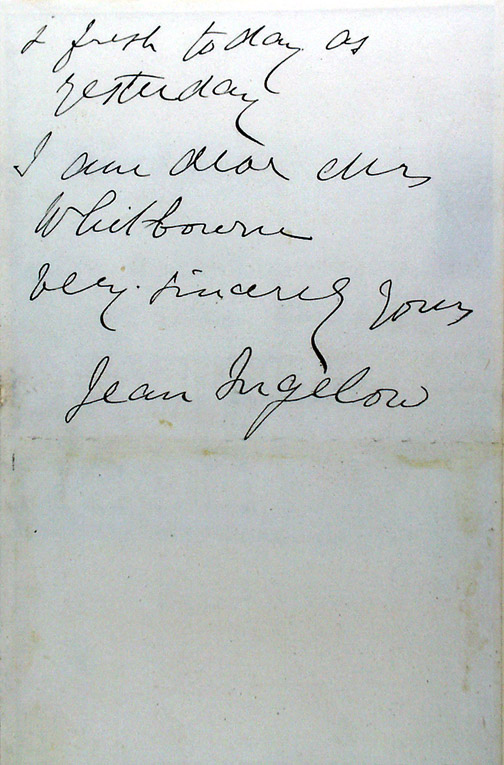 & fresh today as
yesterday
I am dear Mrs
Whitbourne
very sincerely yours
Jean Ingelow